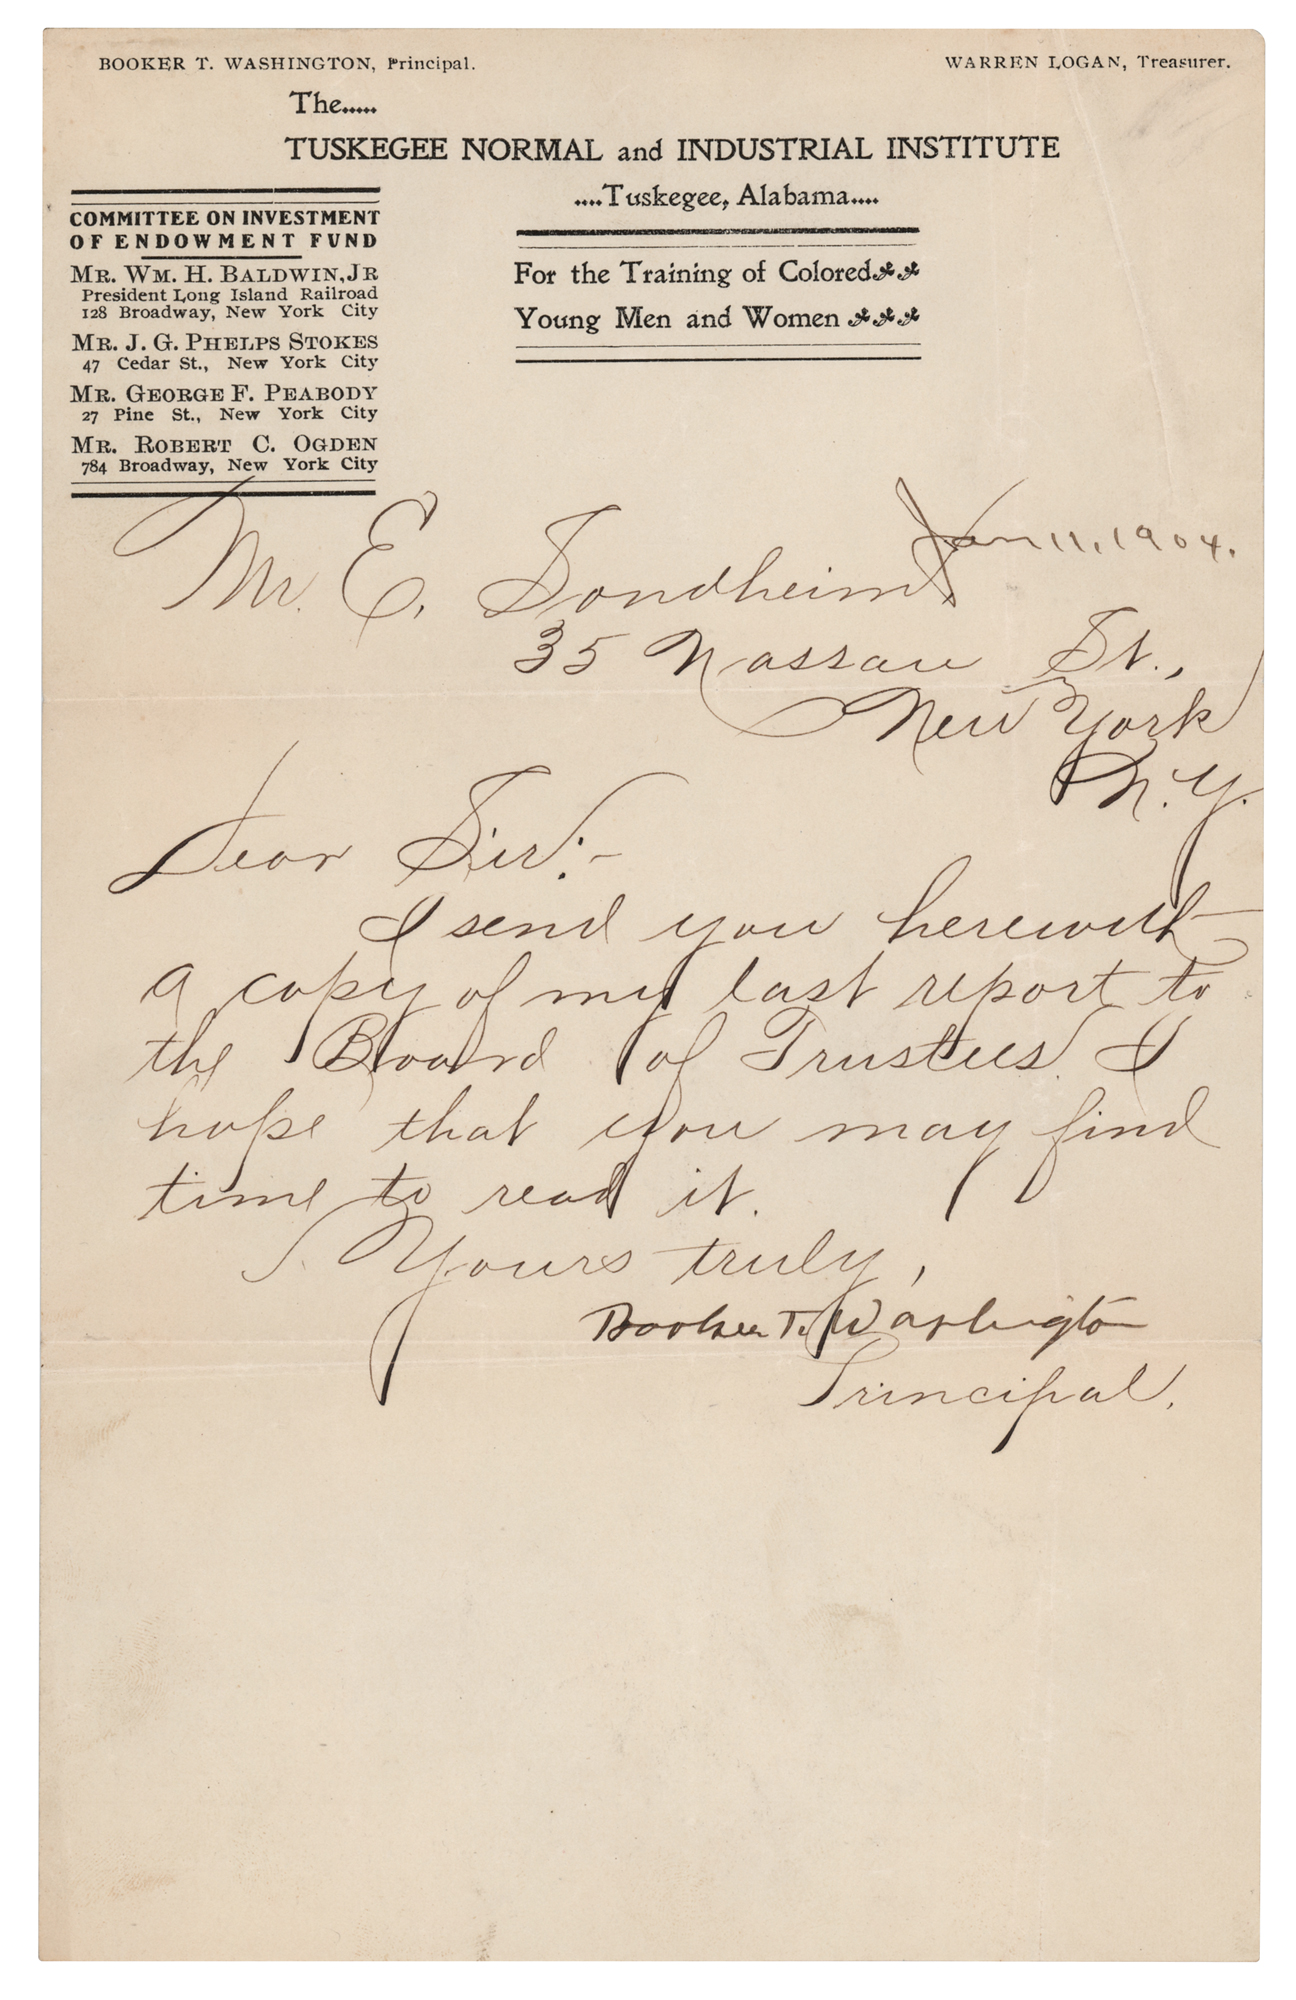 BOOKER T. WASHINGTON, Principal.
WARREN LOGAN, Treasurer.
The.....
TUSKEGEE NORMAL and INDUSTRIAL INSTITUTE
....Tuskegee, Alabama....
For the Training of Colored
Young Men and Women
COMMITTEE ON INVESTMENT
OF ENDOWMENT FUND
MR. WM. H. BALDWIN, JR
President Long Island Railroad
128 Broadway, New York City
MR. J. G. PHELPS STOKES
47 Cedar St., New York City
MR. GEORGE F. PEABODY
27 Pine St., New York City
MR. ROBERT C. OGDEN
784 Broadway, New York City
Jan 11, 1904.
Mr. E. Sondheim
35 Nassau St.,
New York
N.Y.
Dear Sir:-
I send you herewith
a copy of my last report to
the Board of Trustees. I
hope that you may find
time to read it.
Yours truly,
Booker T. Washington
Principal.